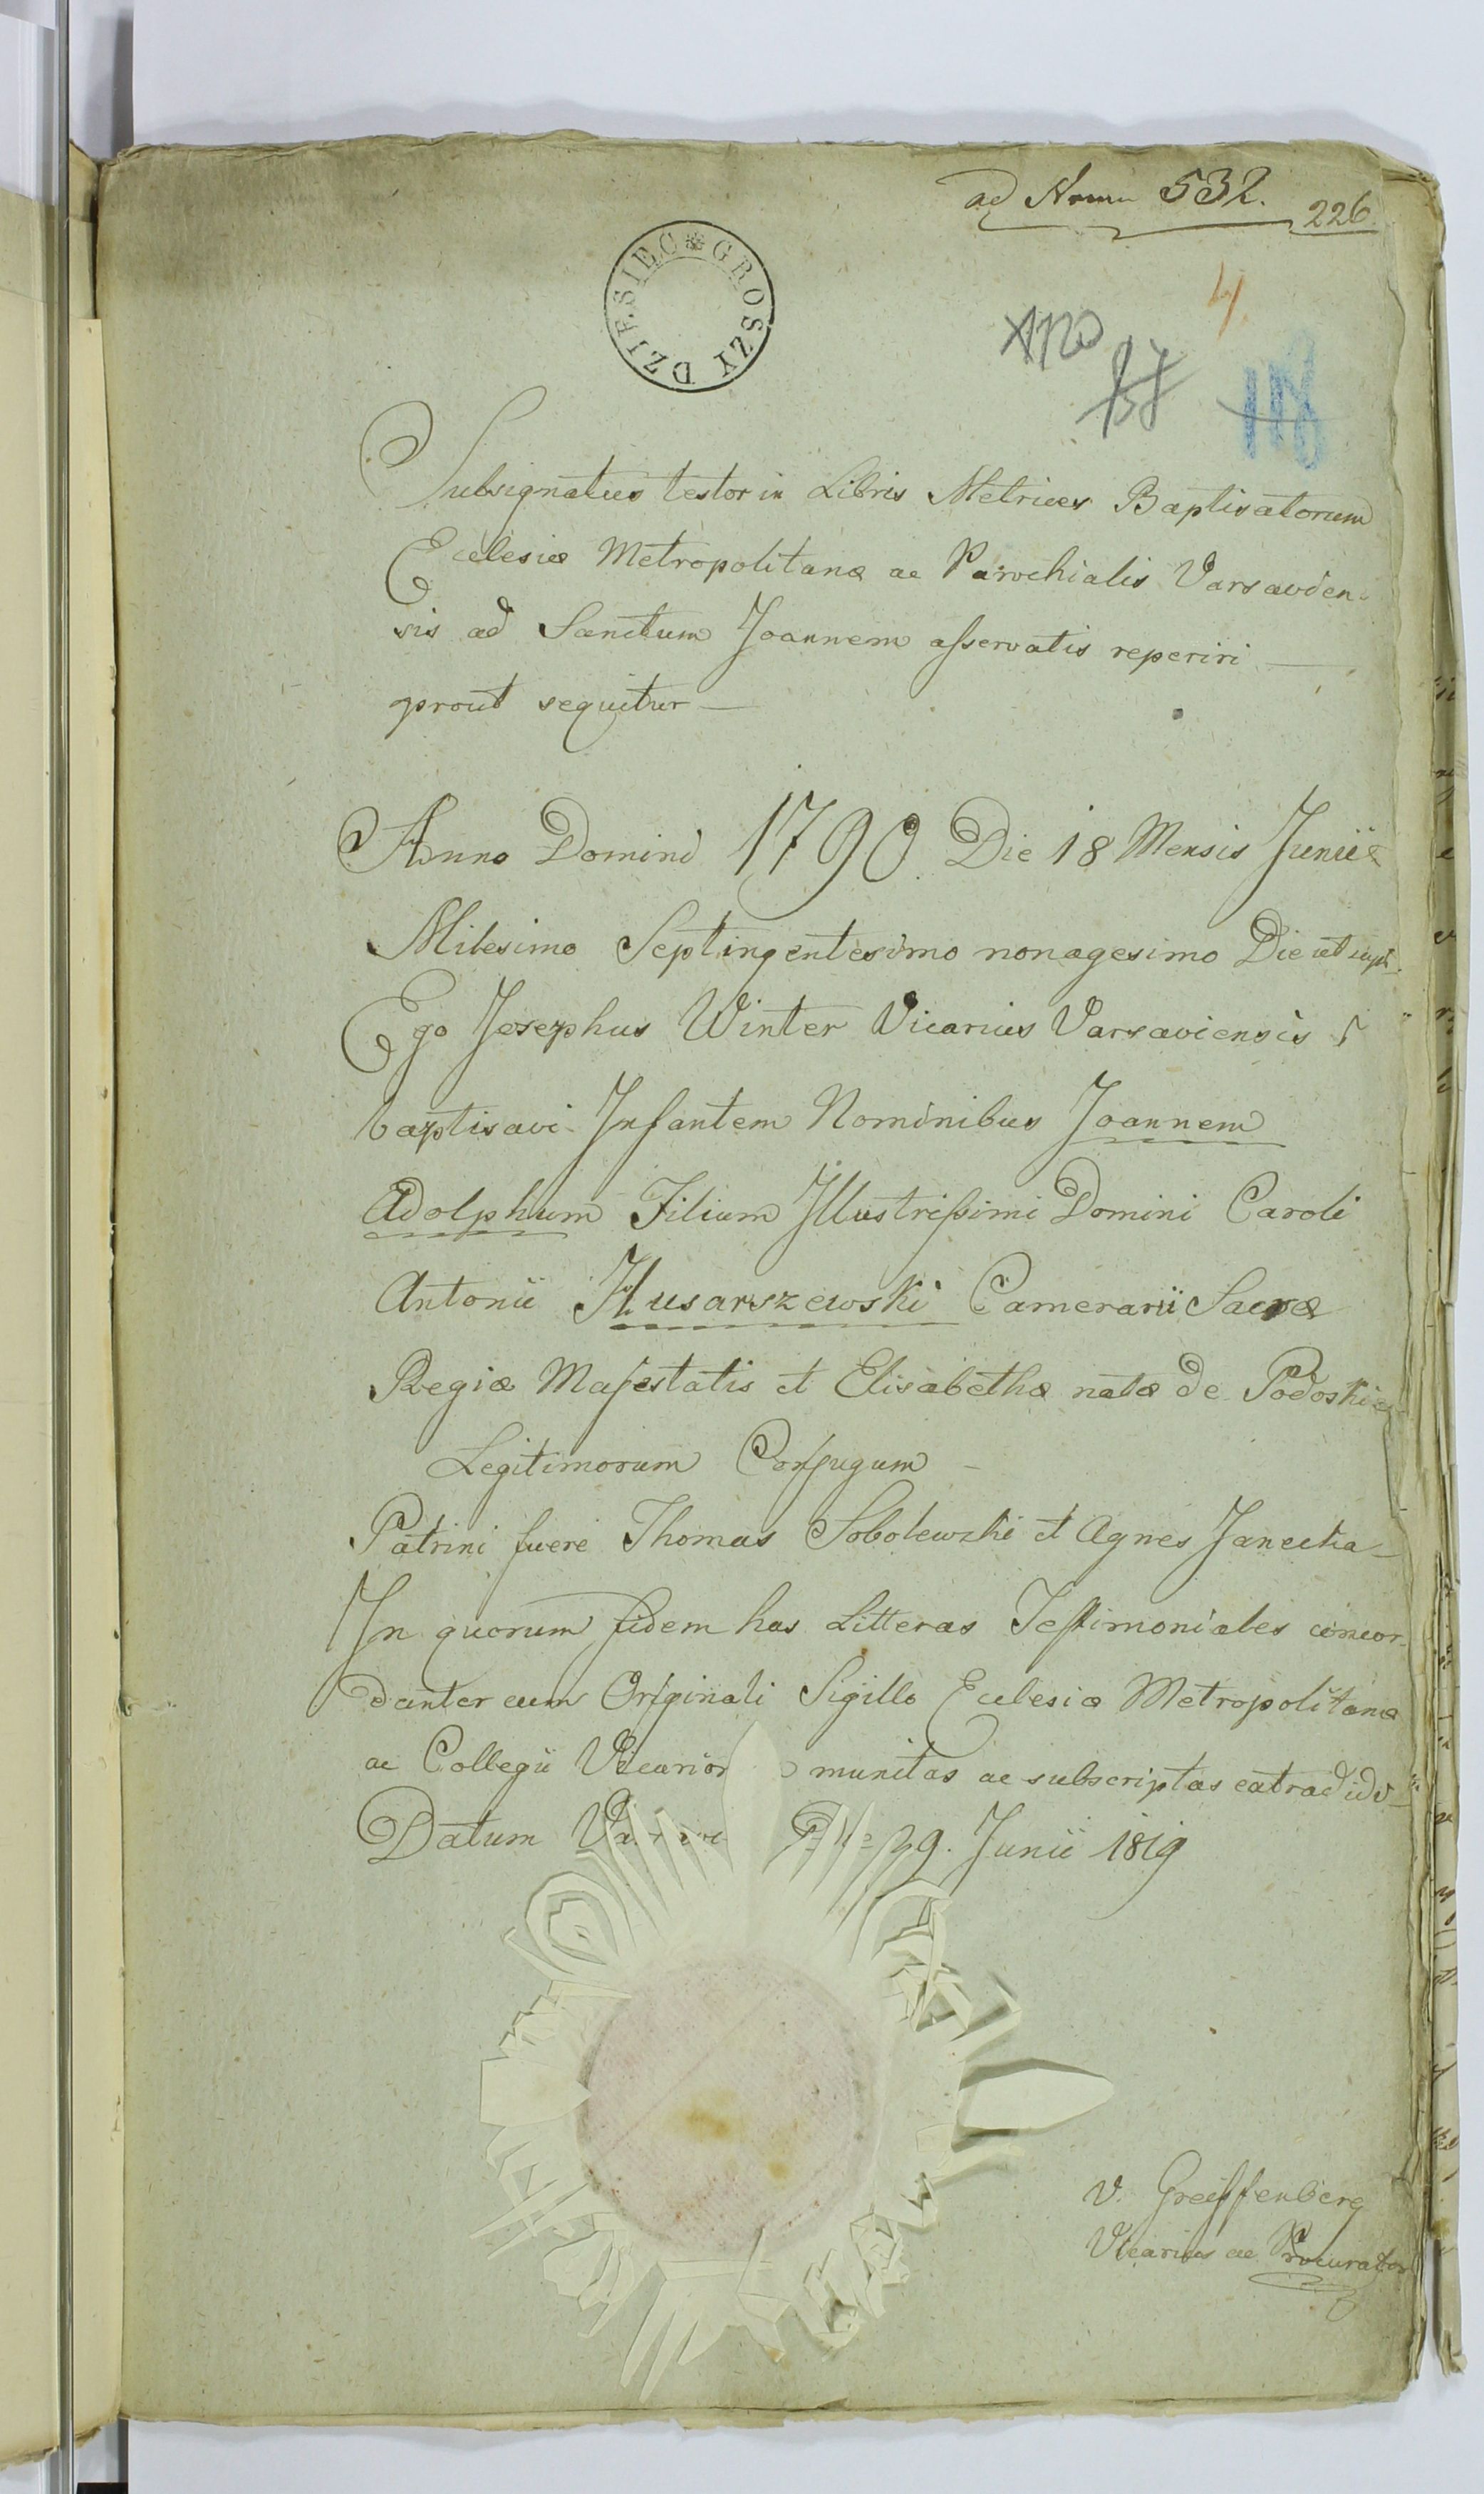 ad Num 532.
226.
GROSZY DZIESIEC
4
118
Subsignatus testor in Libris Metrices Baptisatorum
Ecclesiæ Metropolitanæ ac Parochialis Varsavien-
sis ad Sanctum Joannem asservatis reperiri —
prout sequitur —
Anno Domini 1790. Die 18 Mensis Junii
Milesimo Septingentesimo nonagesimo Die ut supr.
Ego Josephus Winter Vicarius Varsaviensis
baptisavi Infantem Nominibus Joannem
Adolphum Filium Illustrissimi Domini Caroli
Antonii Husarszewski Camerarii Sacræ
Regiæ Majestatis et Elisabethæ natæ de Podoskie
Legitimorum Conjugum —
Patrini fuere Thomas Sobolewski et Agnes
In quorum fidem has Litteras Testimoniales concor-
danter cum Originali Sigillo Eclesiæ Metropolitanæ
ac Collegii Vicarior munitas ac subscriptas extradidi —
Datum 29. Junii 1819
V. Greiffenberg
Vicarius ac Procurator